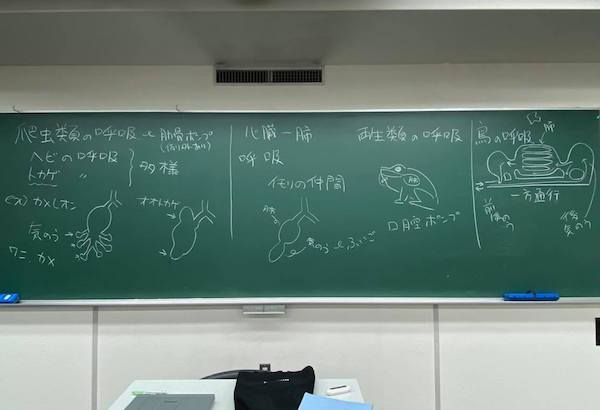 爬虫類の呼吸 と 肋骨ポンプ
ヘビの呼吸
トカゲ 〃
多様
ex) カメレオン
気のう→
ワニ、カメ
オオトカゲ
心臓ー肺
呼吸
イモリの仲間
肺
気のう
両生類の呼吸
肺
口腔ポンプ
鳥の呼吸
肺
一方通行
前
気のう
後
気のう